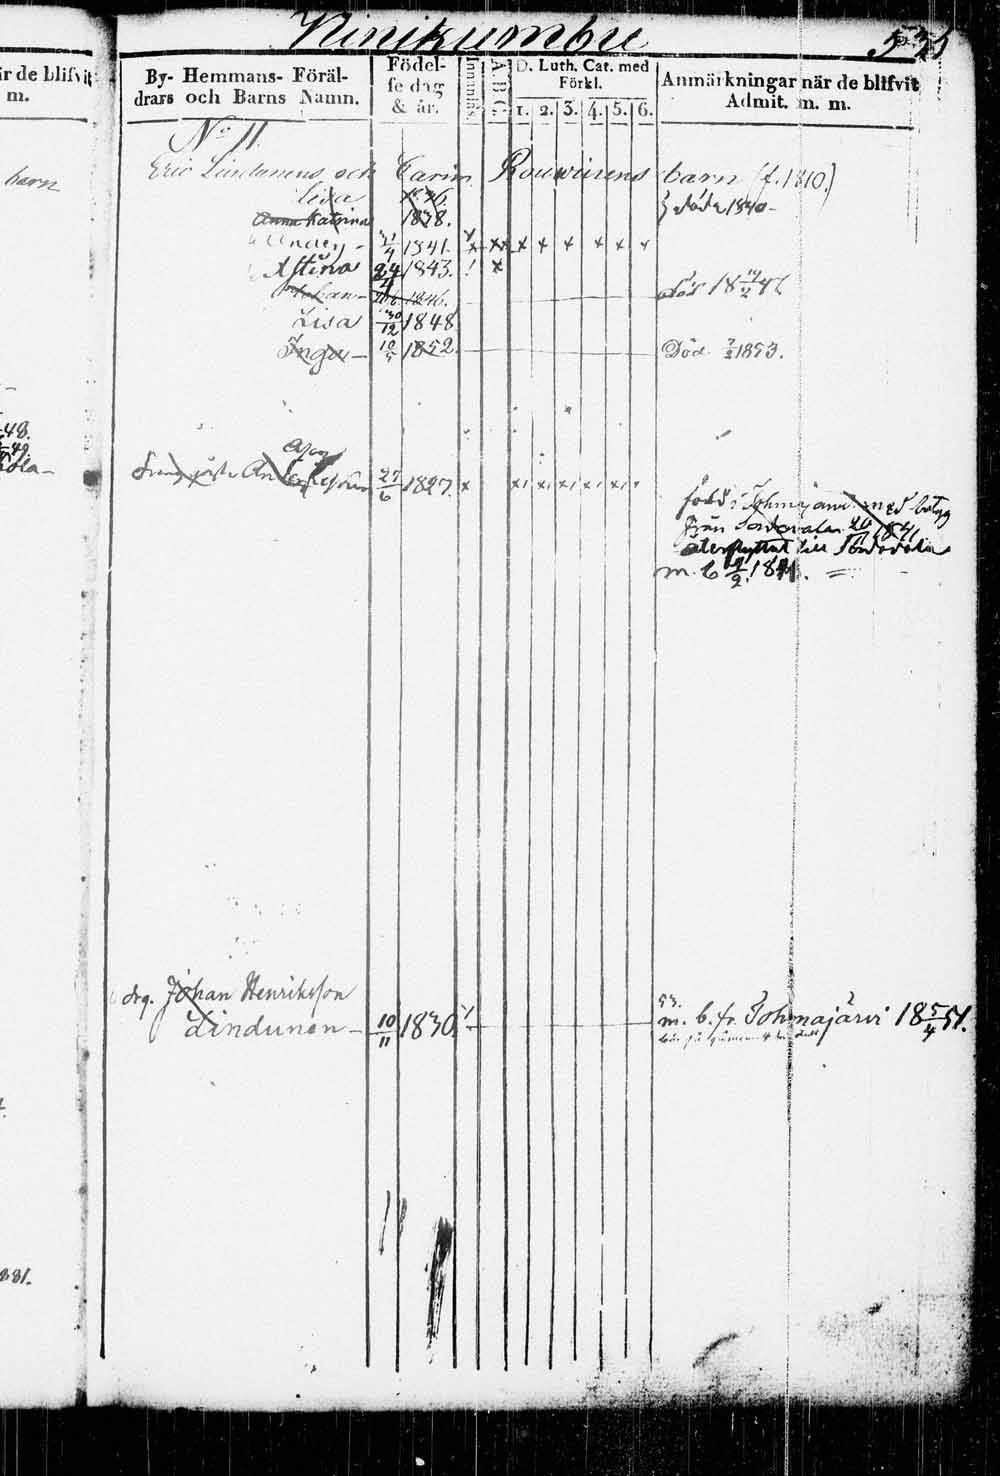 är de blifvit
m.
barn
48.
49.
881.
Niinikumbu 535
By- Hemmans- Föräl-
drars och Barns Namn.
Födel-
se dag
& år.
Innanläs
A B C
D. Luth. Cat. med
Förkl.
1. 2. 3. 4. 5. 6.
Anmärkningar när de blifvit
Admit. m. m.
No 11.
Eric Lindunens och Carin Rouwinens barn (f. 1810.)
Lisa 1836.
Anna Katrina 1838. } döda 1840
Anders 31/4 1841. x xx x x x x x x
Stina 24/4 1843. ! x
Johan 1846. Död 18 14/2 47
Lisa 30/12 1848
Inga 10/5 1852. Död 7/2 1853.
27/6 1827. x x x x x x
född i Tohmajärvi med betyg
från Sordavala 1841
återflyttat till Sordavala
m. b.
drg. Johan Henriksson
Lindunen 10/11 1830.
53.
m. b. fr. Tohmajärvi 18 5/4 51.